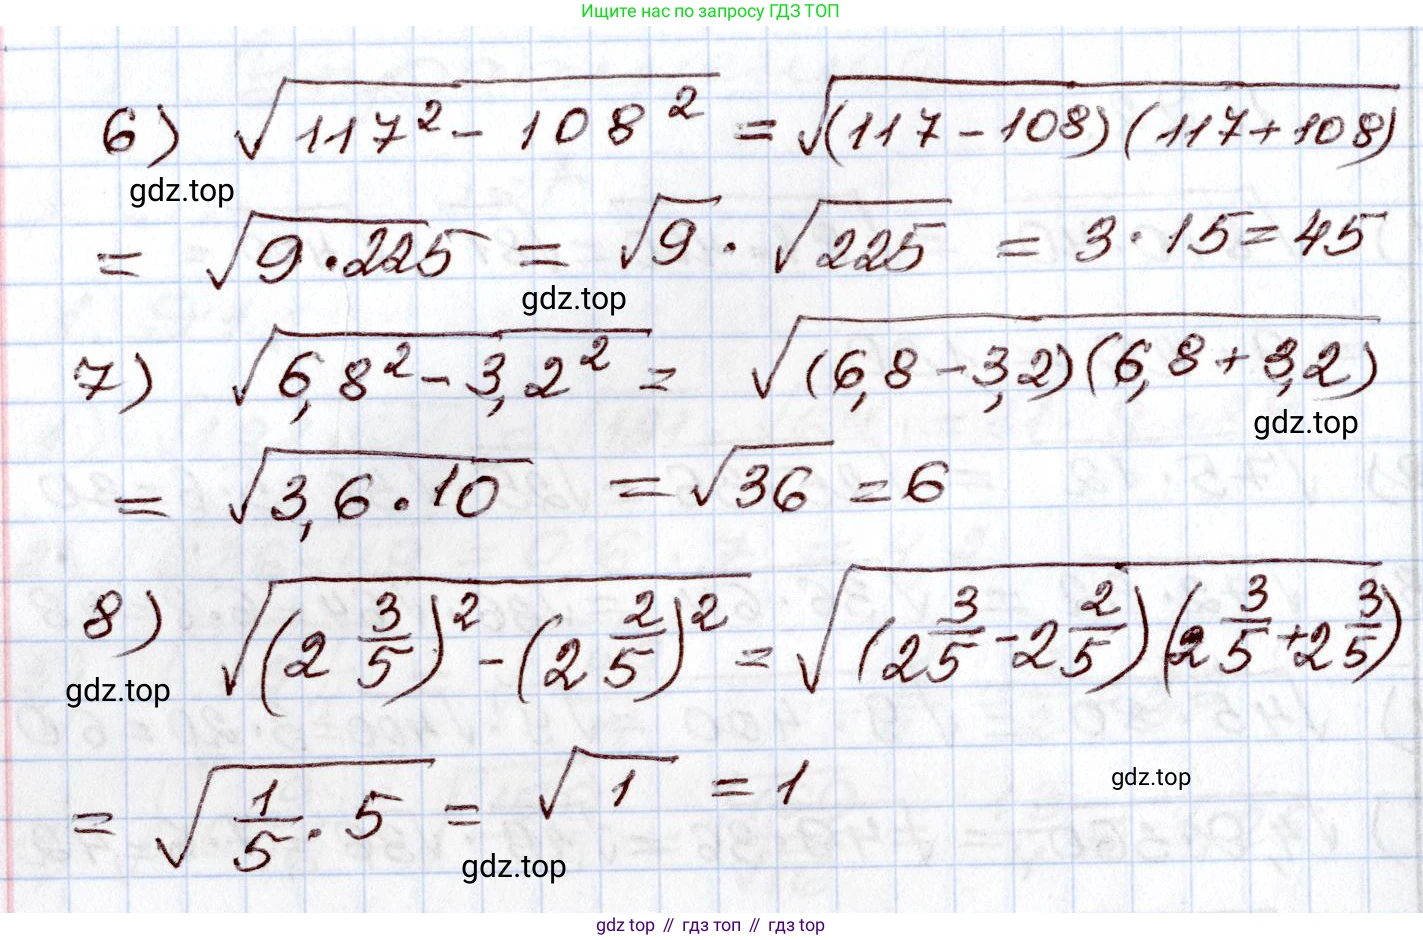 Ищите нас по запросу ГДЗ ТОП
6) √(117² - 108²) = √((117 - 108)(117 + 108))
gdz.top
= √(9 · 225) = √9 · √225 = 3 · 15 = 45
gdz.top
7) √(6,8² - 3,2²) = √((6,8 - 3,2)(6,8 + 3,2))
gdz.top
= √(3,6 · 10) = √36 = 6
8) √((2 3/5)² - (2 2/5)²) = √((2 3/5 - 2 2/5)(2 3/5 + 2 3/5))
gdz.top
= √(1/5 · 5) = √1 = 1
gdz.top
gdz.top
gdz top // гдз топ // gdz top